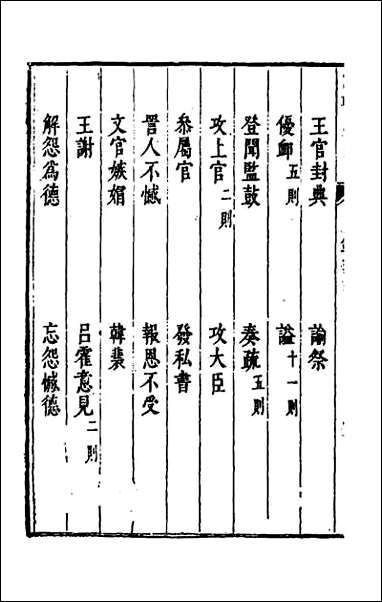 王官封典　諭祭
優䘏五則　謚十一則
登聞監鼓　奏疏五則
攻上官二則　攻大臣
叅屬官　發私書
詈人不憾　報恩不受
文官嫉娟　韓裴
王謝　呂霍意見二則
解怨爲德　忘怨憾德